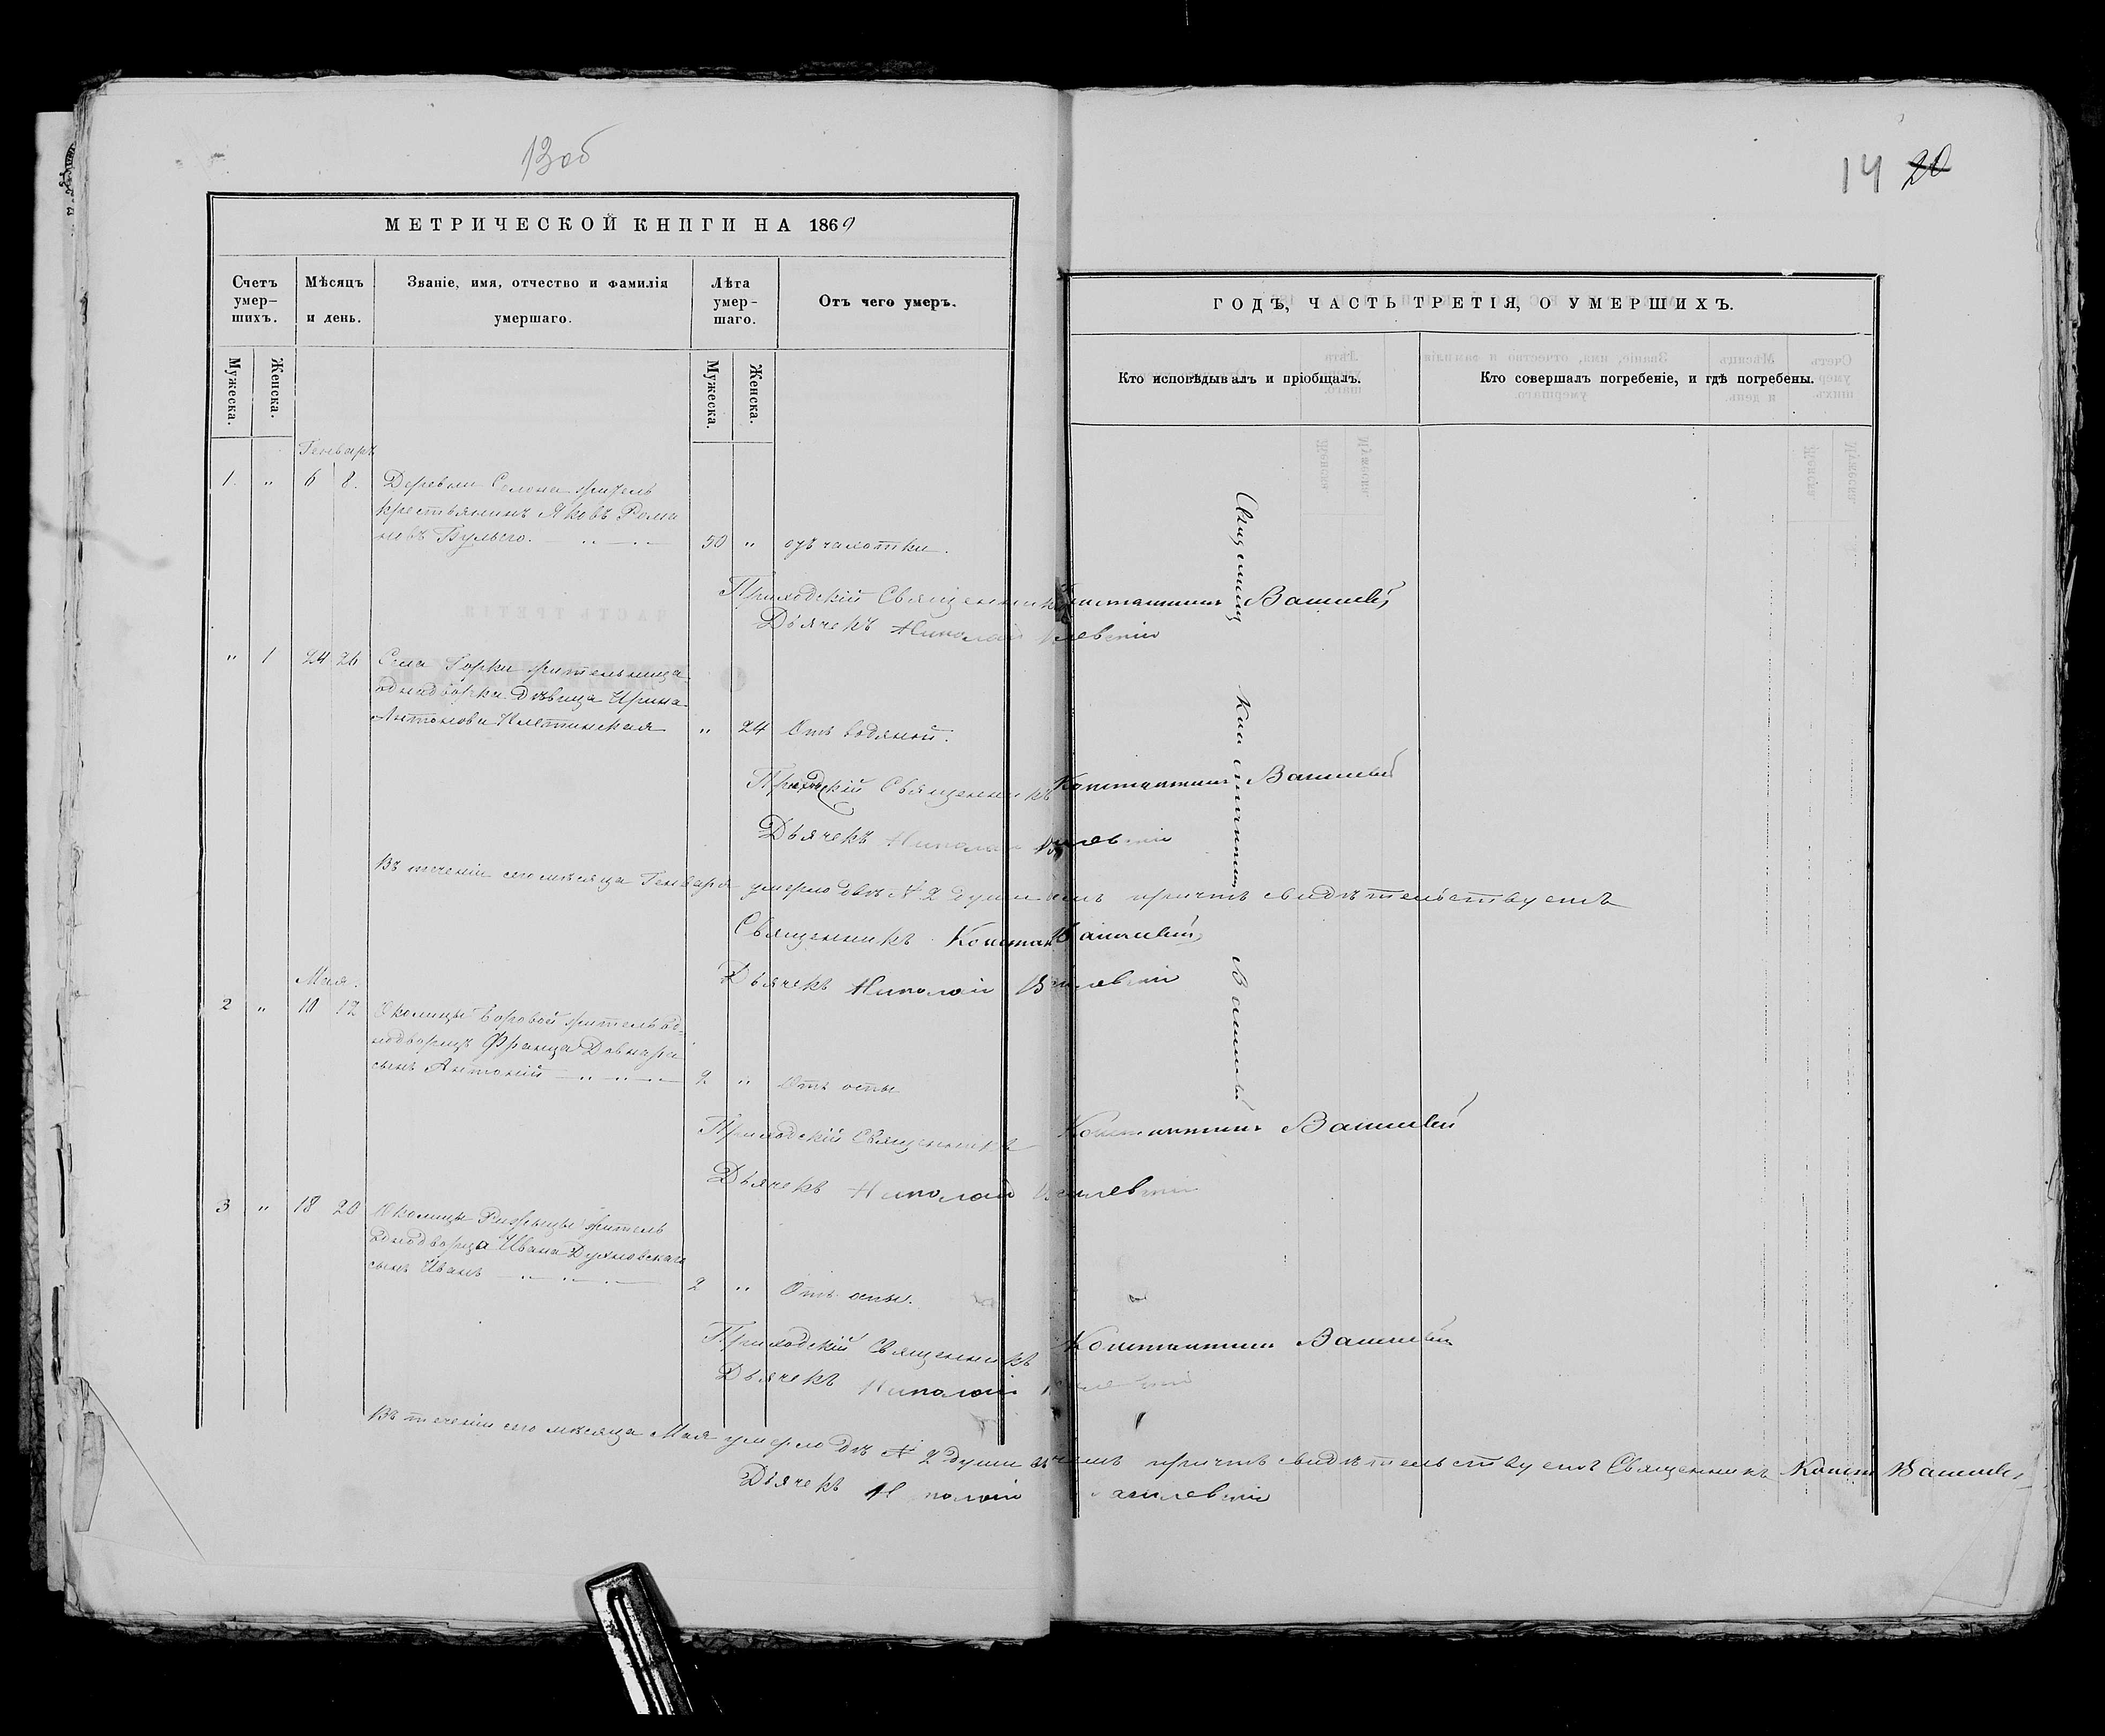 13об
МЕТРИЧЕСКОЙ КНИГИ НА 1869
Счетъ умер-шихъ.
Мѣсяцъ и день.
Званіе, имя, отчество и фамилія умершаго.
Лѣта умер-шаго.
Отъ чего умеръ.
Мужеска.
Женска.
Мужеска.
Женска.
Генварь
1. " 6 8. Деревни Селона житель
крестьянинъ Яковъ Рома
новъ 50 " отъ чахотки.
Приходскій Священникъ Константинъ
Дьячекъ Николай
" 1 24 26 Села Горки жительница
однодворка дѣвица Ирина
Антонова " 24 Отъ водяной.
Приходскій Священникъ Константинъ
Дьячекъ Николай
Въ теченіи сего мѣсяца Генваря умерло двѣ № 2 души причтъ свидѣтельствуетъ
Священникъ Констан
Дьячекъ Николай
Мая.
2 " 10 12 Околицы Боровой житель од-
нодворца Франца Довнара
сынъ Антоній 2 " Отъ оспы
Приходскій Священникъ Константинъ
Дьячекъ Николай
3 " 18 20 Околицы житель
однодворца Ивана Духновскаго
сынъ Иванъ 2 " Отъ оспы.
Приходскій Священникъ Константинъ
Дьячекъ Николай
Въ теченіи сего мѣсяца Мая умерло двѣ № 2 души въ чемъ причтъ свидѣтельствуетъ Священникъ Конст
Дьячекъ Николай
14 20
ГОДЪ, ЧАСТЬ ТРЕТІЯ, О УМЕРШИХЪ.
Кто исповѣдывалъ и пріобщалъ.
Кто совершалъ погребеніе, и гдѣ погребены.
Священникъ Константинъ